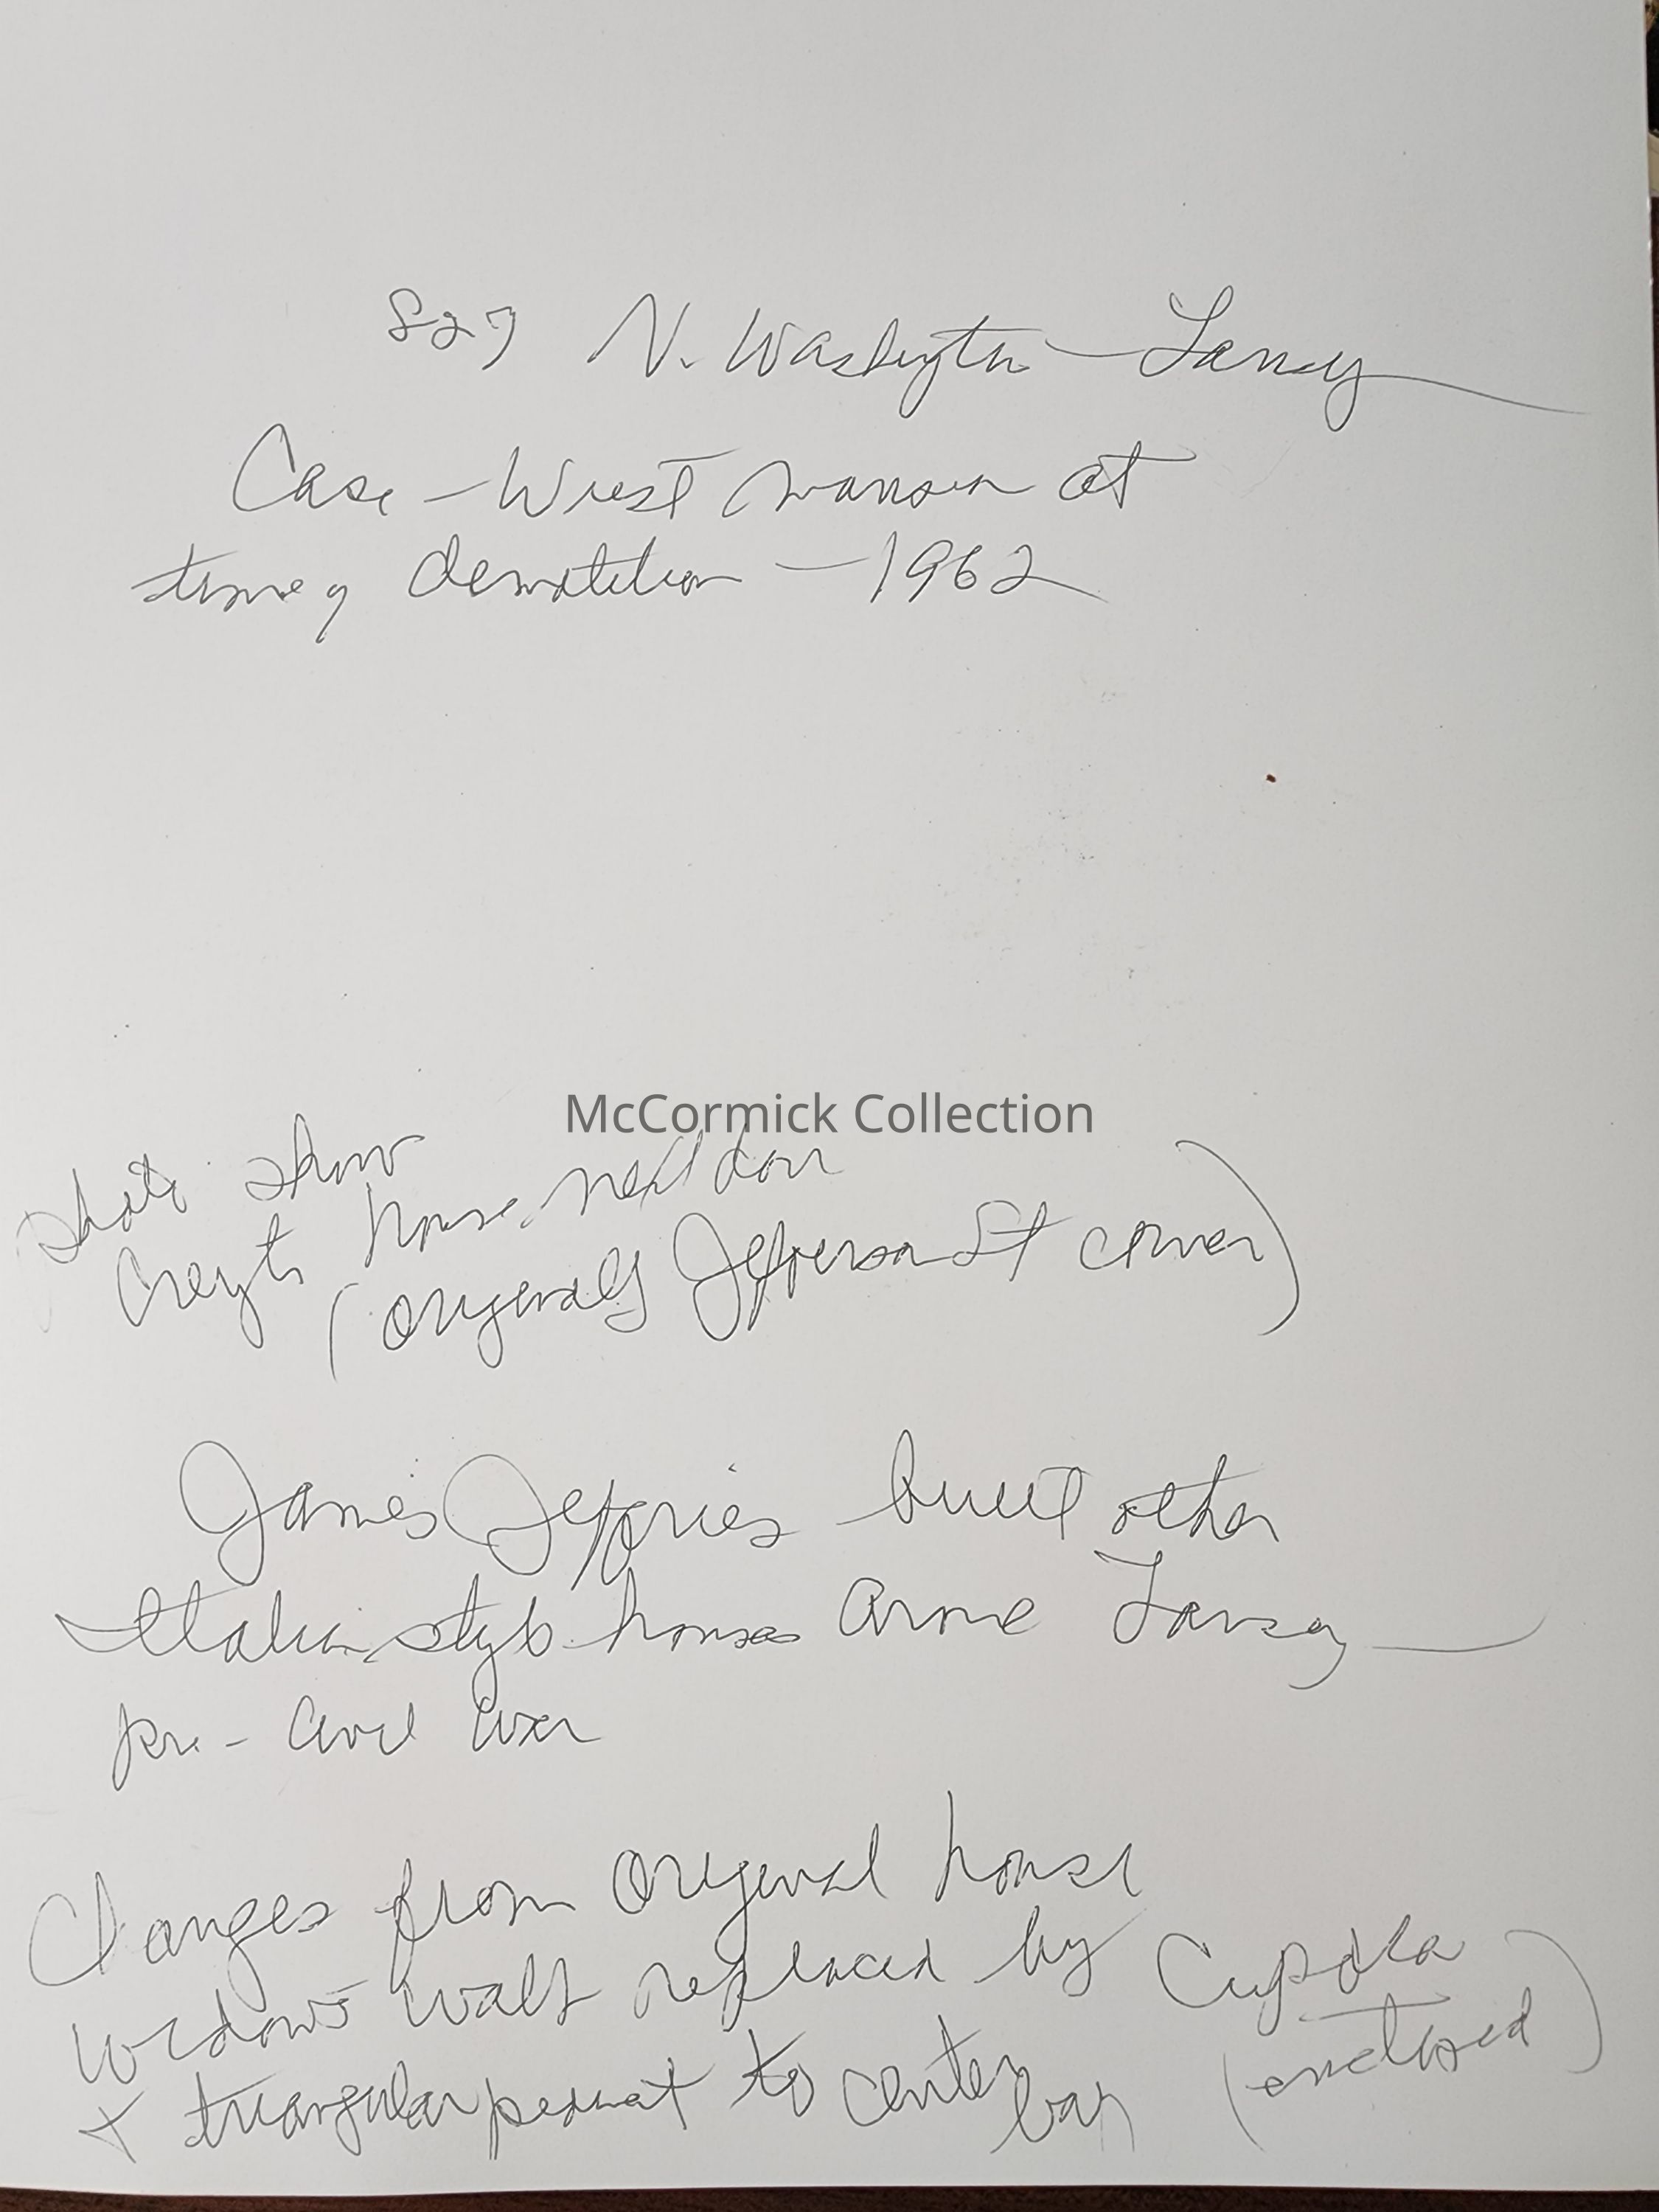 827 N. Washington — Lansing
Case – Wiest mansion at
time of demolition — 1962
McCormick Collection
photo shows
house next door
(originally Jefferson St corner)
James Jeffries built other
Italian style houses around Lansing —
pre-Civil War
Changes from original house
widows walk replaced by Cupola
(enclosed)
+ triangular pediment to center bay